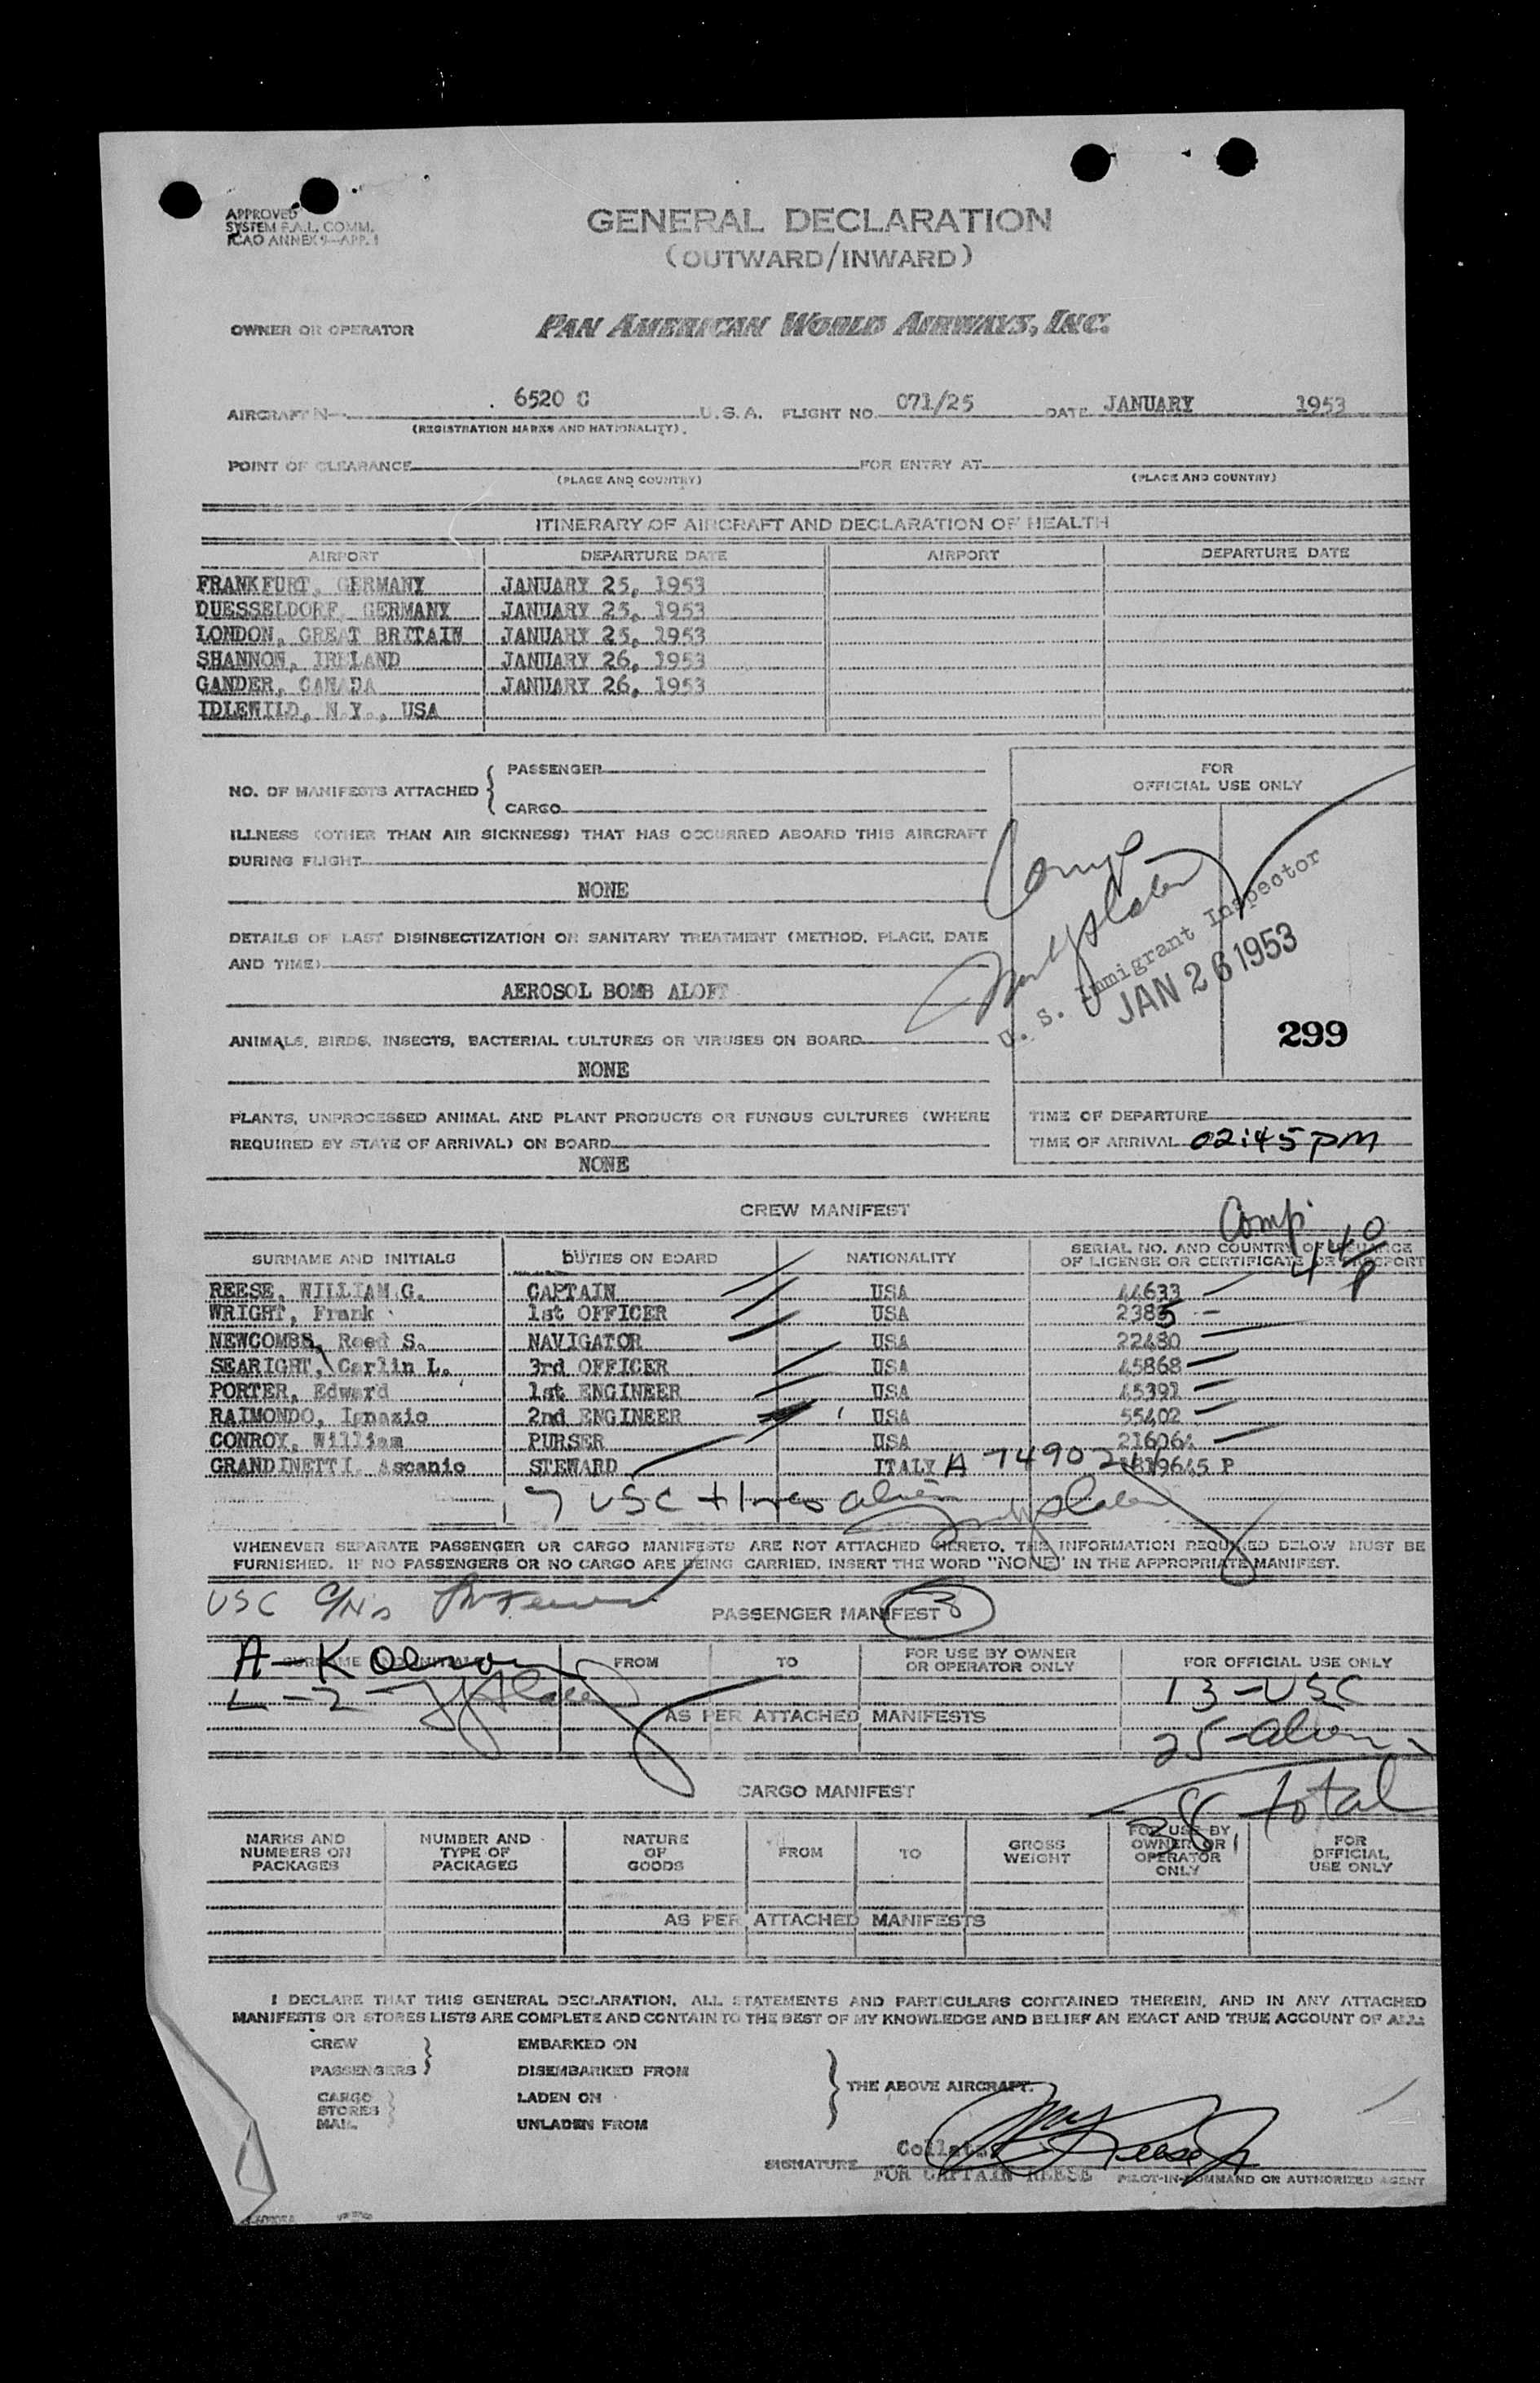 APPROVED
SYSTEM F.A.L. COMM.
ICAO ANNEX 9—APP. 1
GENERAL DECLARATION
(OUTWARD/INWARD)
OWNER OR OPERATOR PAN AMERICAN WORLD AIRWAYS, INC.
AIRCRAFT N— 6520 C U.S.A. FLIGHT NO. 071/25 DATE JANUARY 1953
(REGISTRATION MARKS AND NATIONALITY)
POINT OF CLEARANCE FOR ENTRY AT
(PLACE AND COUNTRY) (PLACE AND COUNTRY)
ITINERARY OF AIRCRAFT AND DECLARATION OF HEALTH
AIRPORT DEPARTURE DATE AIRPORT DEPARTURE DATE
FRANKFURT, GERMANY JANUARY 25, 1953
DUESSELDORF, GERMANY JANUARY 25, 1953
LONDON, GREAT BRITAIN JANUARY 25, 1953
SHANNON, IRELAND JANUARY 26, 1953
GANDER, CANADA JANUARY 26, 1953
IDLEWILD, N.Y., USA
NO. OF MANIFESTS ATTACHED { PASSENGER
CARGO
FOR
OFFICIAL USE ONLY
ILLNESS (OTHER THAN AIR SICKNESS) THAT HAS OCCURRED ABOARD THIS AIRCRAFT
DURING FLIGHT
NONE
DETAILS OF LAST DISINSECTIZATION OR SANITARY TREATMENT (METHOD, PLACE, DATE
AND TIME)
AEROSOL BOMB ALOFT
U. S. Immigrant Inspector
JAN 26 1953
299
ANIMALS, BIRDS, INSECTS, BACTERIAL CULTURES OR VIRUSES ON BOARD
NONE
PLANTS, UNPROCESSED ANIMAL AND PLANT PRODUCTS OR FUNGUS CULTURES (WHERE
REQUIRED BY STATE OF ARRIVAL) ON BOARD
NONE
TIME OF DEPARTURE
TIME OF ARRIVAL 02:45 pm
CREW MANIFEST
Comp
SURNAME AND INITIALS DUTIES ON BOARD NATIONALITY SERIAL NO. AND COUNTRY OF ISSUANCE
OF LICENSE OR CERTIFICATE OR PASSPORT
REESE, WILLIAM G. CAPTAIN USA 44633
WRIGHT, Frank 1st OFFICER USA 2385
NEWCOMBE, Reed S. NAVIGATOR USA 22480
SEARIGHT, Carlin L. 3rd OFFICER USA 45868
PORTER, Edward 1st ENGINEER USA 45391
RAIMONDO, Ignazio 2nd ENGINEER USA 55402
CONROY, William PURSER USA 216064
GRANDINETTI, Ascanio STEWARD ITALY A 74902 9645 P
7 USC + 1 alien
WHENEVER SEPARATE PASSENGER OR CARGO MANIFESTS ARE NOT ATTACHED HERETO, THE INFORMATION REQUIRED BELOW MUST BE
FURNISHED. IF NO PASSENGERS OR NO CARGO ARE BEING CARRIED, INSERT THE WORD "NONE" IN THE APPROPRIATE MANIFEST.
USC
PASSENGER MANIFEST
A-K
L-Z
SURNAME AND INITIALS FROM TO FOR USE BY OWNER
OR OPERATOR ONLY FOR OFFICIAL USE ONLY
13-USC
AS PER ATTACHED MANIFESTS
25-alien
38 total
CARGO MANIFEST
MARKS AND
NUMBERS ON
PACKAGES
NUMBER AND
TYPE OF
PACKAGES
NATURE
OF
GOODS
FROM
TO
GROSS
WEIGHT
FOR USE BY
OWNER OR
OPERATOR
ONLY
FOR
OFFICIAL
USE ONLY
AS PER ATTACHED MANIFESTS
I DECLARE THAT THIS GENERAL DECLARATION, ALL STATEMENTS AND PARTICULARS CONTAINED THEREIN, AND IN ANY ATTACHED
MANIFESTS OR STORES LISTS ARE COMPLETE AND CONTAIN TO THE BEST OF MY KNOWLEDGE AND BELIEF AN EXACT AND TRUE ACCOUNT OF ALL:
CREW EMBARKED ON
PASSENGERS DISEMBARKED FROM
THE ABOVE AIRCRAFT.
CARGO LADEN ON
STORES
MAIL UNLADEN FROM
SIGNATURE FOR CAPTAIN REESE PILOT-IN-COMMAND OR AUTHORIZED AGENT